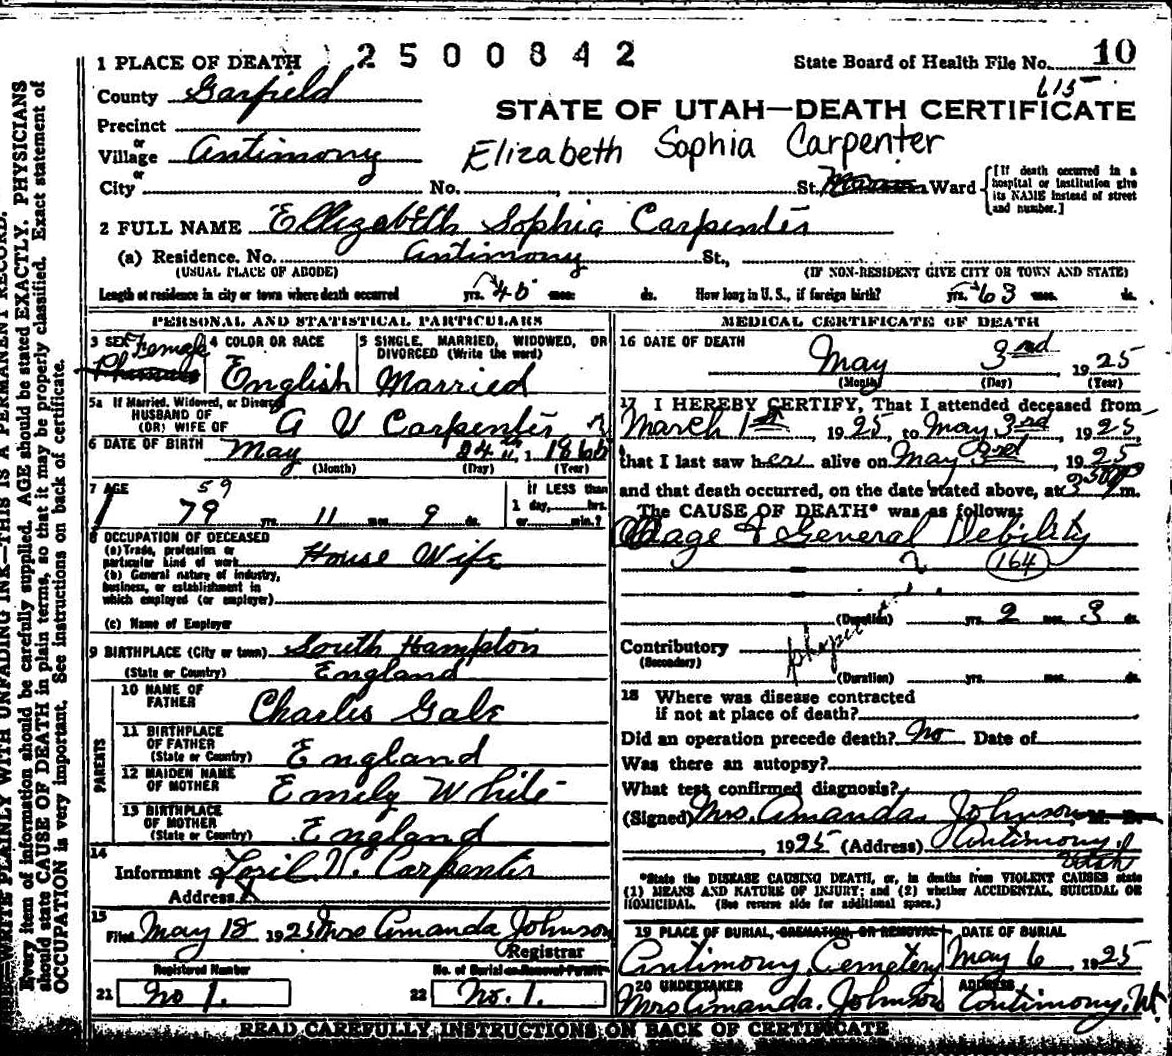 2500842
1 PLACE OF DEATH
State Board of Health File No. 10
615
County Garfield
STATE OF UTAH—DEATH CERTIFICATE
Precinct
or
Village Antimony
Elizabeth Sophia Carpenter
or
City No. , St. Ward
[If death occurred in a hospital or institution give its NAME instead of street and number.]
2 FULL NAME Ellizabeth Sophia Carpenter
(a) Residence. No. Antimony St.,
(USUAL PLACE OF ABODE) (IF NON-RESIDENT GIVE CITY OR TOWN AND STATE)
Length of residence in city or town where death occurred yrs. 45 mos. ds. How long in U. S., if foreign birth? yrs. 63 mos. ds.
PERSONAL AND STATISTICAL PARTICULARS
3 SEX Female
4 COLOR OR RACE
English
5 SINGLE, MARRIED, WIDOWED, OR DIVORCED (Write the word)
Married
5a If Married, Widowed, or Divorced
HUSBAND OF
(OR) WIFE OF A V Carpenter
6 DATE OF BIRTH May 24th, 1866
(Month) (Day) (Year)
7 AGE 59
79 yrs. 11 mos. 9 ds.
If LESS than
1 day, hrs.
or min.?
8 OCCUPATION OF DECEASED
(a) Trade, profession or
particular kind of work House Wife
(b) General nature of industry,
business, or establishment in
which employed (or employer)
(c) Name of Employer
9 BIRTHPLACE (City or town) South Hampton
(State or Country) England
PARENTS
10 NAME OF
FATHER Charles Gale
11 BIRTHPLACE
OF FATHER
(State or Country) England
12 MAIDEN NAME
OF MOTHER Emily White
13 BIRTHPLACE
OF MOTHER
(State or Country) England
14
Informant V. Carpenter
Address X
15
Filed May 18 1925 Mrs Amanda Johnson
Registrar
Registered Number
21 No 1.
No. of Burial or Removal Permit
22 No. 1.
MEDICAL CERTIFICATE OF DEATH
16 DATE OF DEATH
May 3rd 1925
(Month) (Day) (Year)
17 I HEREBY CERTIFY, That I attended deceased from
March 1st, 1925, to May 3rd, 1925,
that I last saw her alive on May 3rd, 1925
and that death occurred, on the date stated above, at m.
The CAUSE OF DEATH* was as follows:
Old age & General Debility
164
(Duration) yrs. 2 mos. 3 ds.
Contributory
(Secondary)
(Duration) yrs. mos. ds.
18 Where was disease contracted
if not at place of death?
Did an operation precede death? No Date of
Was there an autopsy?
What test confirmed diagnosis?
(Signed) Mrs. Amanda Johnson, M. D.
, 1925 (Address) Antimony,
Utah
*State the DISEASE CAUSING DEATH, or, in deaths from VIOLENT CAUSES state
(1) MEANS AND NATURE OF INJURY; and (2) whether ACCIDENTAL, SUICIDAL OR
HOMICIDAL. (See reverse side for additional space.)
19 PLACE OF BURIAL, CREMATION, OR REMOVAL
Antimony Cemetery
DATE OF BURIAL
May 6, 1925
20 UNDERTAKER
Mrs Amanda. Johnson
ADDRESS
Antimony, Ut
READ CAREFULLY INSTRUCTIONS ON BACK OF CERTIFICATE
WRITE PLAINLY WITH UNFADING INK—THIS IS A PERMANENT RECORD.
Every item of information should be carefully supplied. AGE should be stated EXACTLY. PHYSICIANS
should state CAUSE OF DEATH in plain terms, so that it may be properly classified. Exact statement of
OCCUPATION is very important. See instructions on back of certificate.